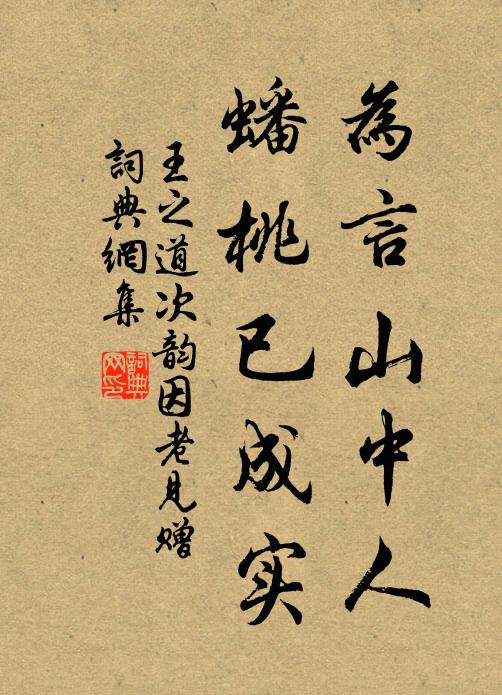 為言山中人
蟠桃已成实
王之道次韵因老見贈
詞典網集
詞典网印